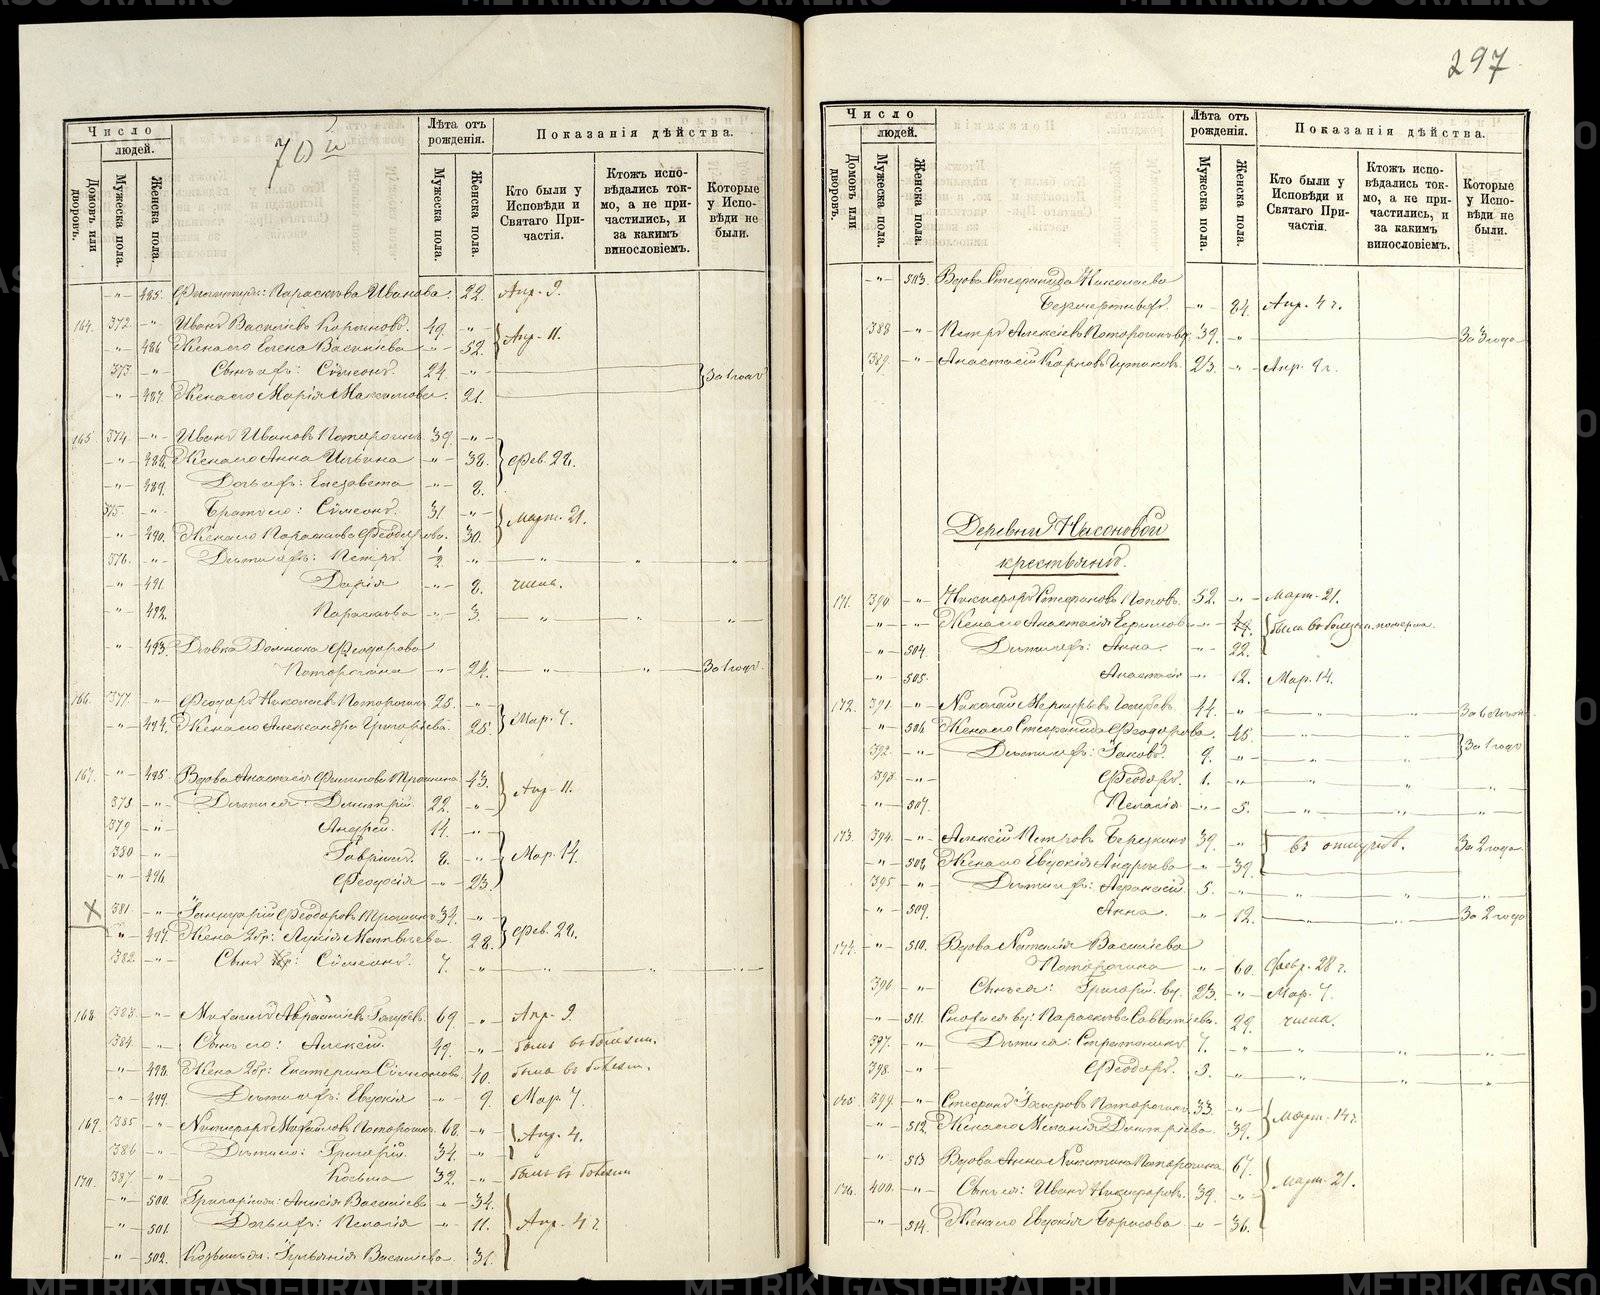 297
70й
Число
людей.
Домовъ или дворовъ.
Мужеска пола.
Женска пола.
Лѣта отъ рожденія.
Мужеска пола.
Женска пола.
Показанія дѣйства.
Кто были у Исповѣди и Святаго Причастія.
Ктожъ исповѣдались токмо, а не причастились, и за какимъ винословіемъ.
Которые у Исповѣди не были.
-"- 485. Параскева Иванова. 22. Апр. 9.
164. 372 -"- Иванъ Васильевъ 49. -"- Апр. 11.
-"- 486 Жена его Елена Васильева -"- 52.
373 -"- Сынъ ихъ: Сѵмеонъ. 24. -"- За 1 годъ
-"- 487. Жена его Марія Максимова. 21.
165. 374. -"- Иванъ Ивановъ Поторочинъ 39. -"- Фев. 28.
-"- 488. Жена его Анна Ильина -"- 38.
-"- 489. Дочь ихъ: Елизавета -"- 8.
375. -"- Братъ его: Сѵмеонъ. 31. -"- Март. 21.
-"- 490. Жена его Параскева Ѳеодорова. 30.
376. -"- Дѣти ихъ: Петръ. ½ -"- -"- -"- -"-
-"- 491. Дарія -"- 8. числа.
-"- 492. Параскева -"- 3. -"- -"- -"-
-"- 493. Дѣвка Домника Ѳеодорова
Поторочина -"- 24. -"- -"- За 1 годъ.
166. 377. -"- Ѳеодоръ Николаевъ Поторочинъ 25. -"- Мар. 7.
-"- 494. Жена его Александра Григорьева. 25.
167. -"- 495. Вдова Анастасія Филипова Трошина 43. Апр. 11.
378 -"- Дѣти ея: Димитрій. 22. -"-
379 -"- Андрей. 14. -"- Мар. 14.
380 -"- Гавріилъ. 8. -"-
-"- 496. Ѳеодосія -"- 23.
381 -"- Іаннуарій Ѳеодоровъ Трошинъ 34. -"- Фев. 28.
-"- 497. Жена 2бр: Матвѣева 28.
382 -"- Сынъ Сѵмеонъ. 7. -"- -"- -"- -"-
168. 383. -"- Михаилъ Авраміевъ Голубевъ 69. -"- Апр. 9.
384. -"- Сынъ его: Алексій. 49. -"- былъ въ болѣзни.
-"- 498. Жена 2бр: Екатерина Сѵмеонова 40. была въ болѣзни.
-"- 499. Дѣти ихъ: Евдокія -"- 9. Мар. 7.
169. 385 -"- Никифоръ Михайловъ Поторочинъ 68. -"- Апр. 4.
386 -"- Дѣти его: Григорій. 34. -"-
170. 387. -"- Козьма 32. -"- былъ въ болѣзни
-"- 500. Анисія Васильева -"- 34. Апр. 4 г.
-"- 501. Дочь ихъ: Пелагія -"- 11.
-"- 502. Іуліанія Васильева 31.
Число
людей.
Домовъ или дворовъ.
Мужеска пола.
Женска пола.
Лѣта отъ рожденія.
Мужеска пола.
Женска пола.
Показанія дѣйства.
Кто были у Исповѣди и Святаго Причастія.
Ктожъ исповѣдались токмо, а не причастились, и за какимъ винословіемъ.
Которые у Исповѣди не были.
-"- 503. Вдова Стефанида Николаева
-"- 84. Апр. 4 г.
388 -"- Петръ Алексіевъ Поторочинъ 39. -"- За 3 года
389. -"- Анастасій Карповъ 23. -"- Апр. 9 г.
Деревни Насоновой
крестьяне.
171. 390 -"- Никифоръ Стефановъ Поповъ. 52. -"- Март. 21.
-"- -"- Жена его Анастасія 49. была въ болѣзни, померла.
-"- 504. Дѣти ихъ: Анна. -"- 22.
-"- 505. Анастасія -"- 12. Мар. 14.
172. 391. -"- Николай Меркурьевъ Голубевъ. 44. -"- -"- -"- За 6 лѣтъ
-"- 506. Жена его Стефанида Ѳеодорова. 46. -"- -"- За 1 годъ
392. -"- Дѣти ихъ: Іаковъ. 9. -"- -"- -"-
393 -"- Ѳеодоръ. 1. -"- -"- -"- -"-
-"- 507. Пелагія -"- 5. -"- -"- -"-
173. 394. -"- Алексій Петровъ Березкинъ 39. -"- въ отлучкѣ. За 2 года
-"- 508. Жена его Евдокія Андреева -"- 39.
395 -"- Дѣти ихъ: Аѳанасій. 5. -"- -"- -"- -"-
-"- 509. Анна. -"- 12. -"- -"- За 2 года
174. -"- 510. Вдова Наталія Васильева
Поторочина -"- 60. Февр. 28 г.
396 -"- Сынъ ея: Григорій вд. 23. -"- Мар. 7.
-"- 511. Сноха ея вд: Параскева Савватіева. 29. числа.
397. -"- Дѣти ея: Стратоникъ 7. -"- -"- -"- -"-
398. -"- Ѳеодоръ. 3. -"- -"- -"- -"-
175. 399. -"- Стефанъ Поторочинъ. 33. -"- Март. 14 г.
-"- 512. Жена его Меланія Димитріева. 39.
-"- 513 Вдова Анна Никитина Поторочина 67. Март. 21.
176. 400. -"- Сынъ ея: Иванъ Никифоровъ. 39. -"-
-"- 514. Жена его Евдокія Борисова -"- 36.
METRIKI.GASO-URAL.RU